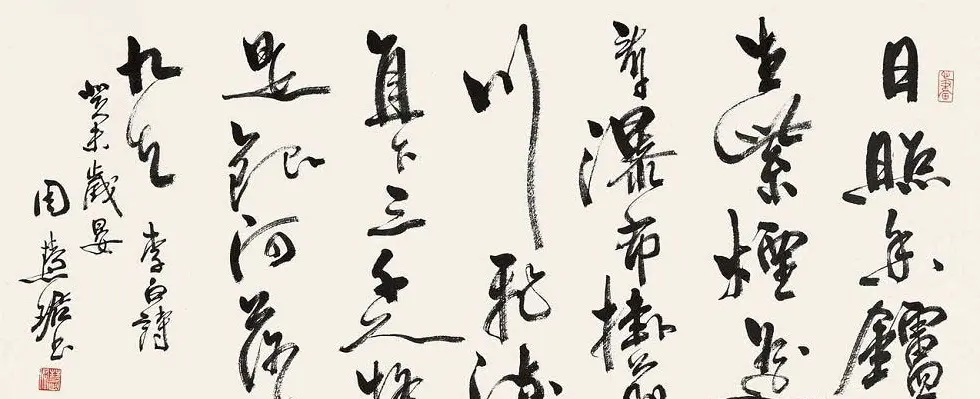 日照香鑪
生紫煙遥
看瀑布掛前
川飛流
直下三千尺疑
是銀河落
九天
李白詩
癸未歲晏
周慧珺書